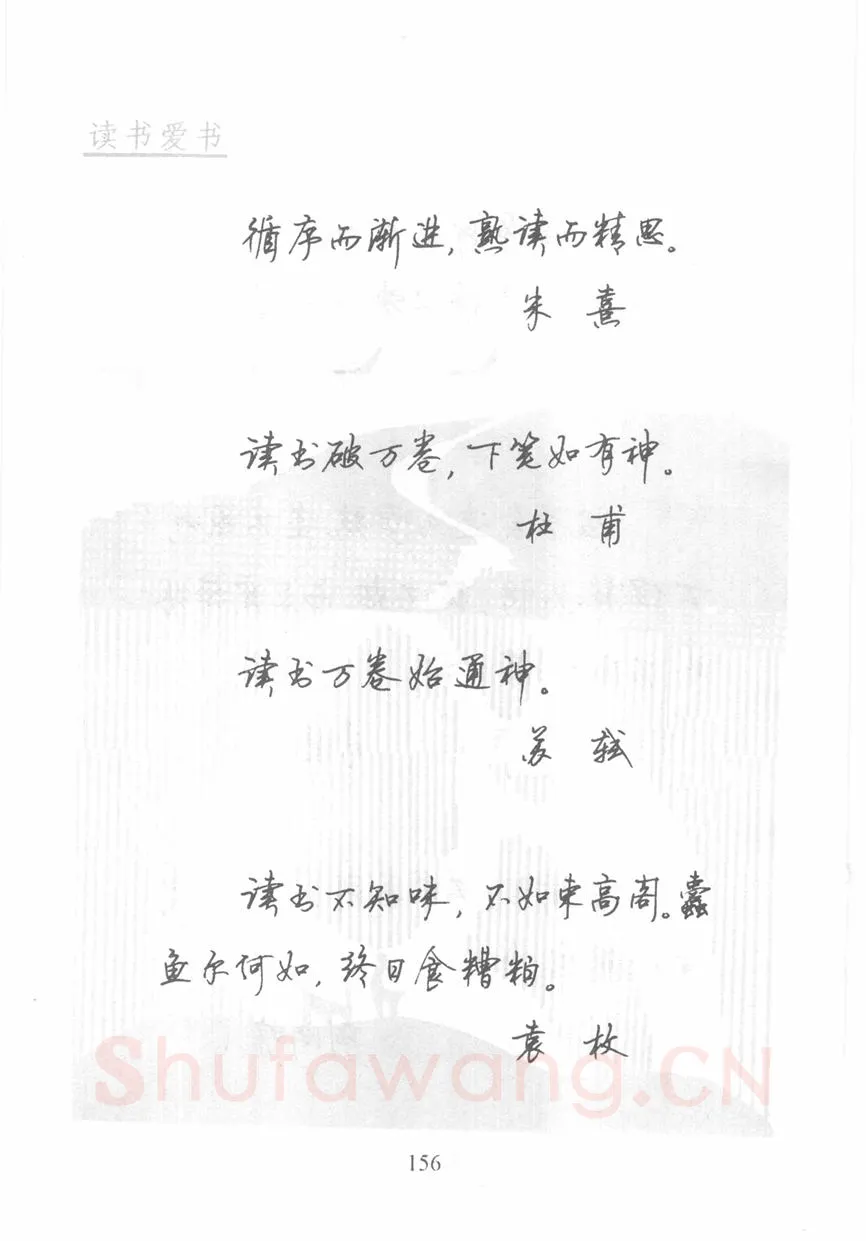 读书爱书
循序而渐进，熟读而精思。
朱 熹
读书破万卷，下笔如有神。
杜 甫
读书万卷始通神。
苏 轼
读书不知味，不如束高阁。蠹
鱼尔何如，终日食糟粕。
袁 枚
Shufawang.CN
156